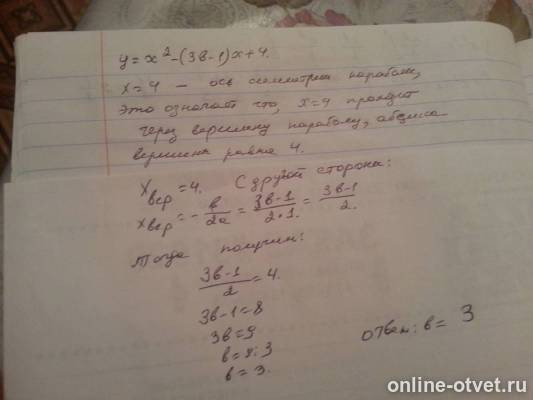 y = x² - (3в-1)x + 4.
x = 4 — ось симметрии параболы,
это означает что, x=4 проходит
через вершину параболу, абцисса
вершины равна 4.
xвер = 4. С другой стороны:
xвер = - в/2a = 3в-1/2·1. = 3в-1/2.
Тогда получим:
3в-1/2 = 4.
3в-1=8
3в=9
в=9:3
в=3.
ответ: в= 3
online-otvet.ru